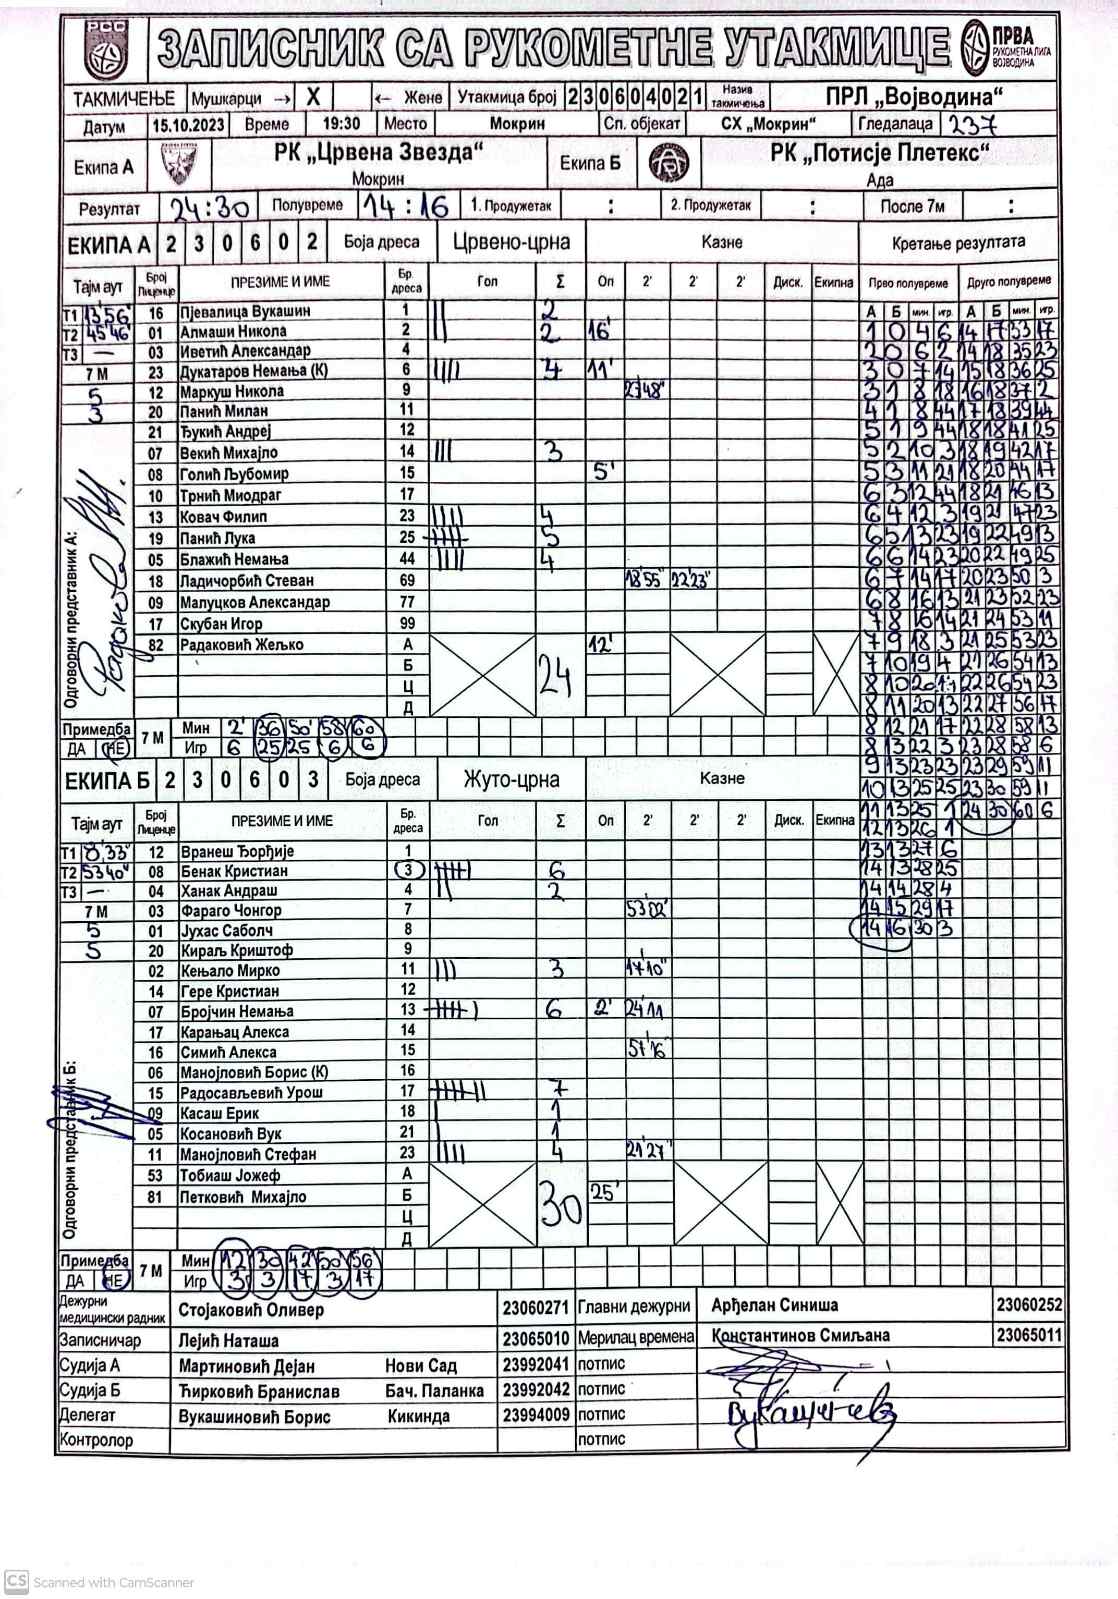 ЗАПИСНИК СА РУКОМЕТНЕ УТАКМИЦЕ
ПРВА РУКОМЕТНА ЛИГА ВОЈВОДИНА
ТАКМИЧЕЊЕ Мушкарци → X ← Жене Утакмица број 2 3 0 6 0 4 0 2 1 Назив такмичења ПРЛ „Војводина“
Датум 15.10.2023 Време 19:30 Место Мокрин Сп. објекат СХ „Мокрин“ Гледалаца 237
Екипа А РК „Црвена Звезда“ Мокрин Екипа Б РК „Потисје Плетекс“ Ада
Резултат 24:30 Полувреме 14:16 1. Продужетак : 2. Продужетак : После 7м :
ЕКИПА А 2 3 0 6 0 2 Боја дреса Црвено-црна Казне Кретање резултата
Тајм аут Број Лиценце ПРЕЗИМЕ И ИМЕ Бр. дреса Гол Σ Оп 2' 2' 2' Диск. Екипна Прво полувреме Друго полувреме
А Б мин. игр. А Б мин. игр.
Т1 13'56" 16 Пјевалица Вукашин 1 || 2
Т2 45'46" 01 Алмаши Никола 2 || 2 16' 1 0 4 6 14 17 33 17
Т3 — 03 Иветић Александар 4 2 0 6 2 14 18 35 23
7 М 23 Дукатаров Немања (К) 6 |||| 4 11' 3 0 7 14 15 18 36 25
5 12 Маркуш Никола 9 27'48" 3 1 8 18 16 18 37 2
3 20 Панић Милан 11 4 1 8 44 17 18 39 44
21 Ђукић Андреј 12 5 1 9 44 18 18 41 25
07 Векић Михајло 14 ||| 3 5 2 10 3 18 19 42 17
08 Голић Љубомир 15 5' 5 3 11 21 18 20 44 17
10 Трнић Миодраг 17 6 3 12 44 18 21 46 13
13 Ковач Филип 23 |||| 4 6 4 12 3 19 21 47 23
19 Панић Лука 25 5 6 5 13 23 19 22 49 13
05 Блажић Немања 44 |||| 4 6 6 14 23 20 22 49 25
18 Ладичорбић Стеван 69 18'55" 22'23" 6 7 14 17 20 23 50 3
09 Малуцков Александар 77 6 8 16 13 21 23 52 23
17 Скубан Игор 99 7 8 16 14 21 24 53 11
82 Радаковић Жељко А 12' 7 9 18 3 21 25 53 23
Б 24 7 10 19 4 21 26 54 13
Ц 8 10 20 11 22 26 54 23
Д 8 11 20 13 22 27 56 17
Одговорни представник А:
Примедба 7 М Мин 2' 36 50' 58 60 8 12 21 17 22 28 58 13
ДА НЕ Игр 6 25 25 6 6 8 13 22 3 23 28 58 6
ЕКИПА Б 2 3 0 6 0 3 Боја дреса Жуто-црна Казне 9 13 23 23 23 29 59 11
10 13 25 25 23 30 59 11
Тајм аут Број Лиценце ПРЕЗИМЕ И ИМЕ Бр. дреса Гол Σ Оп 2' 2' 2' Диск. Екипна 11 13 25 1 24 30 60 6
12 13 26 1
Т1 8'33" 12 Вранеш Ђорђије 1 13 13 27 6
Т2 53'40" 08 Бенак Кристиан 3 6 14 13 28 25
Т3 — 04 Ханак Андраш 4 || 2 14 14 28 4
7 М 03 Фараго Чонгор 7 53'02" 14 15 29 17
5 01 Јухас Саболч 8 14 16 30 3
5 20 Кираљ Криштоф 9
02 Кењало Мирко 11 ||| 3 17'10"
14 Гере Кристиан 12
07 Бројчин Немања 13 6 2' 24'11
17 Карањац Алекса 14
16 Симић Алекса 15 51'16
06 Манојловић Борис (К) 16
15 Радосављевић Урош 17 7
09 Касаш Ерик 18 | 1
05 Косановић Вук 21 | 1
11 Манојловић Стефан 23 |||| 4 21'27"
53 Тобиаш Јожеф А
81 Петковић Михајло Б 30 25'
Ц
Д
Одговорни представник Б:
Примедба 7 М Мин 12 30 42 50 56
ДА НЕ Игр 3 3 17 3 17
Дежурни медицински радник Стојаковић Оливер 23060271 Главни дежурни Арђелан Синиша 23060252
Записничар Лејић Наташа 23065010 Мерилац времена Константинов Смиљана 23065011
Судија А Мартиновић Дејан Нови Сад 23992041 потпис
Судија Б Ћирковић Бранислав Бач. Паланка 23992042 потпис
Делегат Вукашиновић Борис Кикинда 23994009 потпис
Контролор потпис
CS Scanned with CamScanner